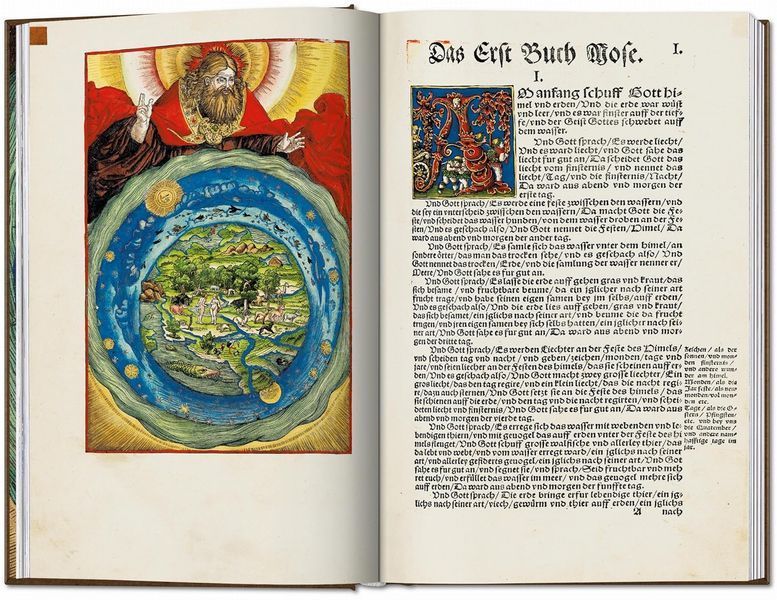 Das Erst Buch Mose. I.
I.
AManfang schuff Gott hi⸗
mel vnd erden/Vnd die erde war wüst
vnd leer/ vnd es war finster auff der tief⸗
fe/ vnd der Geist Gottes schwebet auff
dem wasser.
Vnd Gott sprach/Es werde liecht/
Vnd es ward liecht/ Vnd Gott sahe das
liecht fur gut an/Da scheidet Gott das
liecht vom finsternis/ vnd nennet das
liecht/Tag/vnd die finsternis/Nacht/
Da ward aus abend vnd morgen der
erste tag.
Vnd Gott sprach/Es werde eine feste zwischen den wassern/ vnd
die sey ein vnterscheid zwischen den wassern/Da macht Gott die Fe⸗
ste/vnd scheidet das wasser hunden/von dem wasser droben an der Fe⸗
sten/Vnd es geschach also/ Vnd Gott nennet die Festen/Himel/Da
ward aus abend vnd morgen der ander tag.
Vnd Gott sprach/Es samle sich das wasser vnter dem himel/an
sondere örter/das man das trocken sehe/vnd es geschach also/ Vnd
Gott nennet das trocken/Erde/Vnd die samlung der wasser nennet er/
Meere/Vnd Gott sahe es fur gut an.
Vnd Gott sprach/Es lasse die erde auff gehen gras vnd kraut/das
sich besame/ vnd fruchtbare beume/ da ein jglicher nach seiner art
frucht trage/vnd habe seinen eigen samen bey jm selbs/auff erden/
Vnd es geschach also/ Vnd die erde lies auff gehen/gras vnd kraut/
das sich besamet/ein jglichs nach seiner art/vnd beume die da frucht
trugen/vnd jren eigen samen bey sich selbs hatten/ein jglicher nach sei⸗
ner art/Vnd Gott sahe es fur gut an/ Da ward aus abend vnd mor⸗
gen der dritte tag.
Vnd Gott sprach/Es werden Liechter an der Feste des Himels/
vnd scheiden tag vnd nacht/ vnd geben/zeichen/monden/tage vnd
jare/vnd seien liechter an der Festen des himels/das sie scheinen auff er⸗
den/Vnd es geschach also/ Vnd Gott macht zwey grosse liechter/Ein
gros liecht/das den tag regire/vnd ein klein liecht/das die nacht regi⸗
re/dazu auch sternen/Vnd Gott setzt sie an die Feste des himels/ das
sie schienen auff die erde/vnd den tag vnd die nacht regirten/vnd schei⸗
deten liecht vnd finsternis/Vnd Gott sahe es fur gut an/Da ward aus
abend vnd morgen der vierde tag.
Zeichen/ als der
sonnen/vnd mon⸗
den finsternis/
vnd andere wun⸗
der am himel.
Monden/ als die
Jar feste/als new⸗
monden/vol mon⸗
den etc.
Tage/als die O⸗
stern/ Pfingsten/
etc. vnd bey vns
die Quatember/
vnd andere nam⸗
hafftige tage im
jar.
Vnd Gott sprach/Es errege sich das wasser mit webenden vnd le⸗
bendigen thiern/vnd mit geuogel das auff erden vnter der Feste des hi⸗
mels fleuget/Vnd Gott schuff grosse walfische vnd allerley thier/das
da lebt vnd webt/vnd vom wasser erregt ward/ein jglichs nach seiner
art/vnd allerley gefiderts geuogel/ein jglichs nach seiner art/Vnd Gott
sahe es fur gut an/vnd segnet sie/vnd sprach/Seid fruchtbar vnd meh
ret euch/vnd erfüllet das wasser im meer/ vnd das geuogel mehre sich
auff erden/Da ward aus abend vnd morgen der funffte tag.
Vnd Gott sprach/ Die erde bringe erfur lebendige thier/ein jg⸗
lichs nach seiner art/viech/gewürm vnd thier auff erden/ein jglichs
A nach